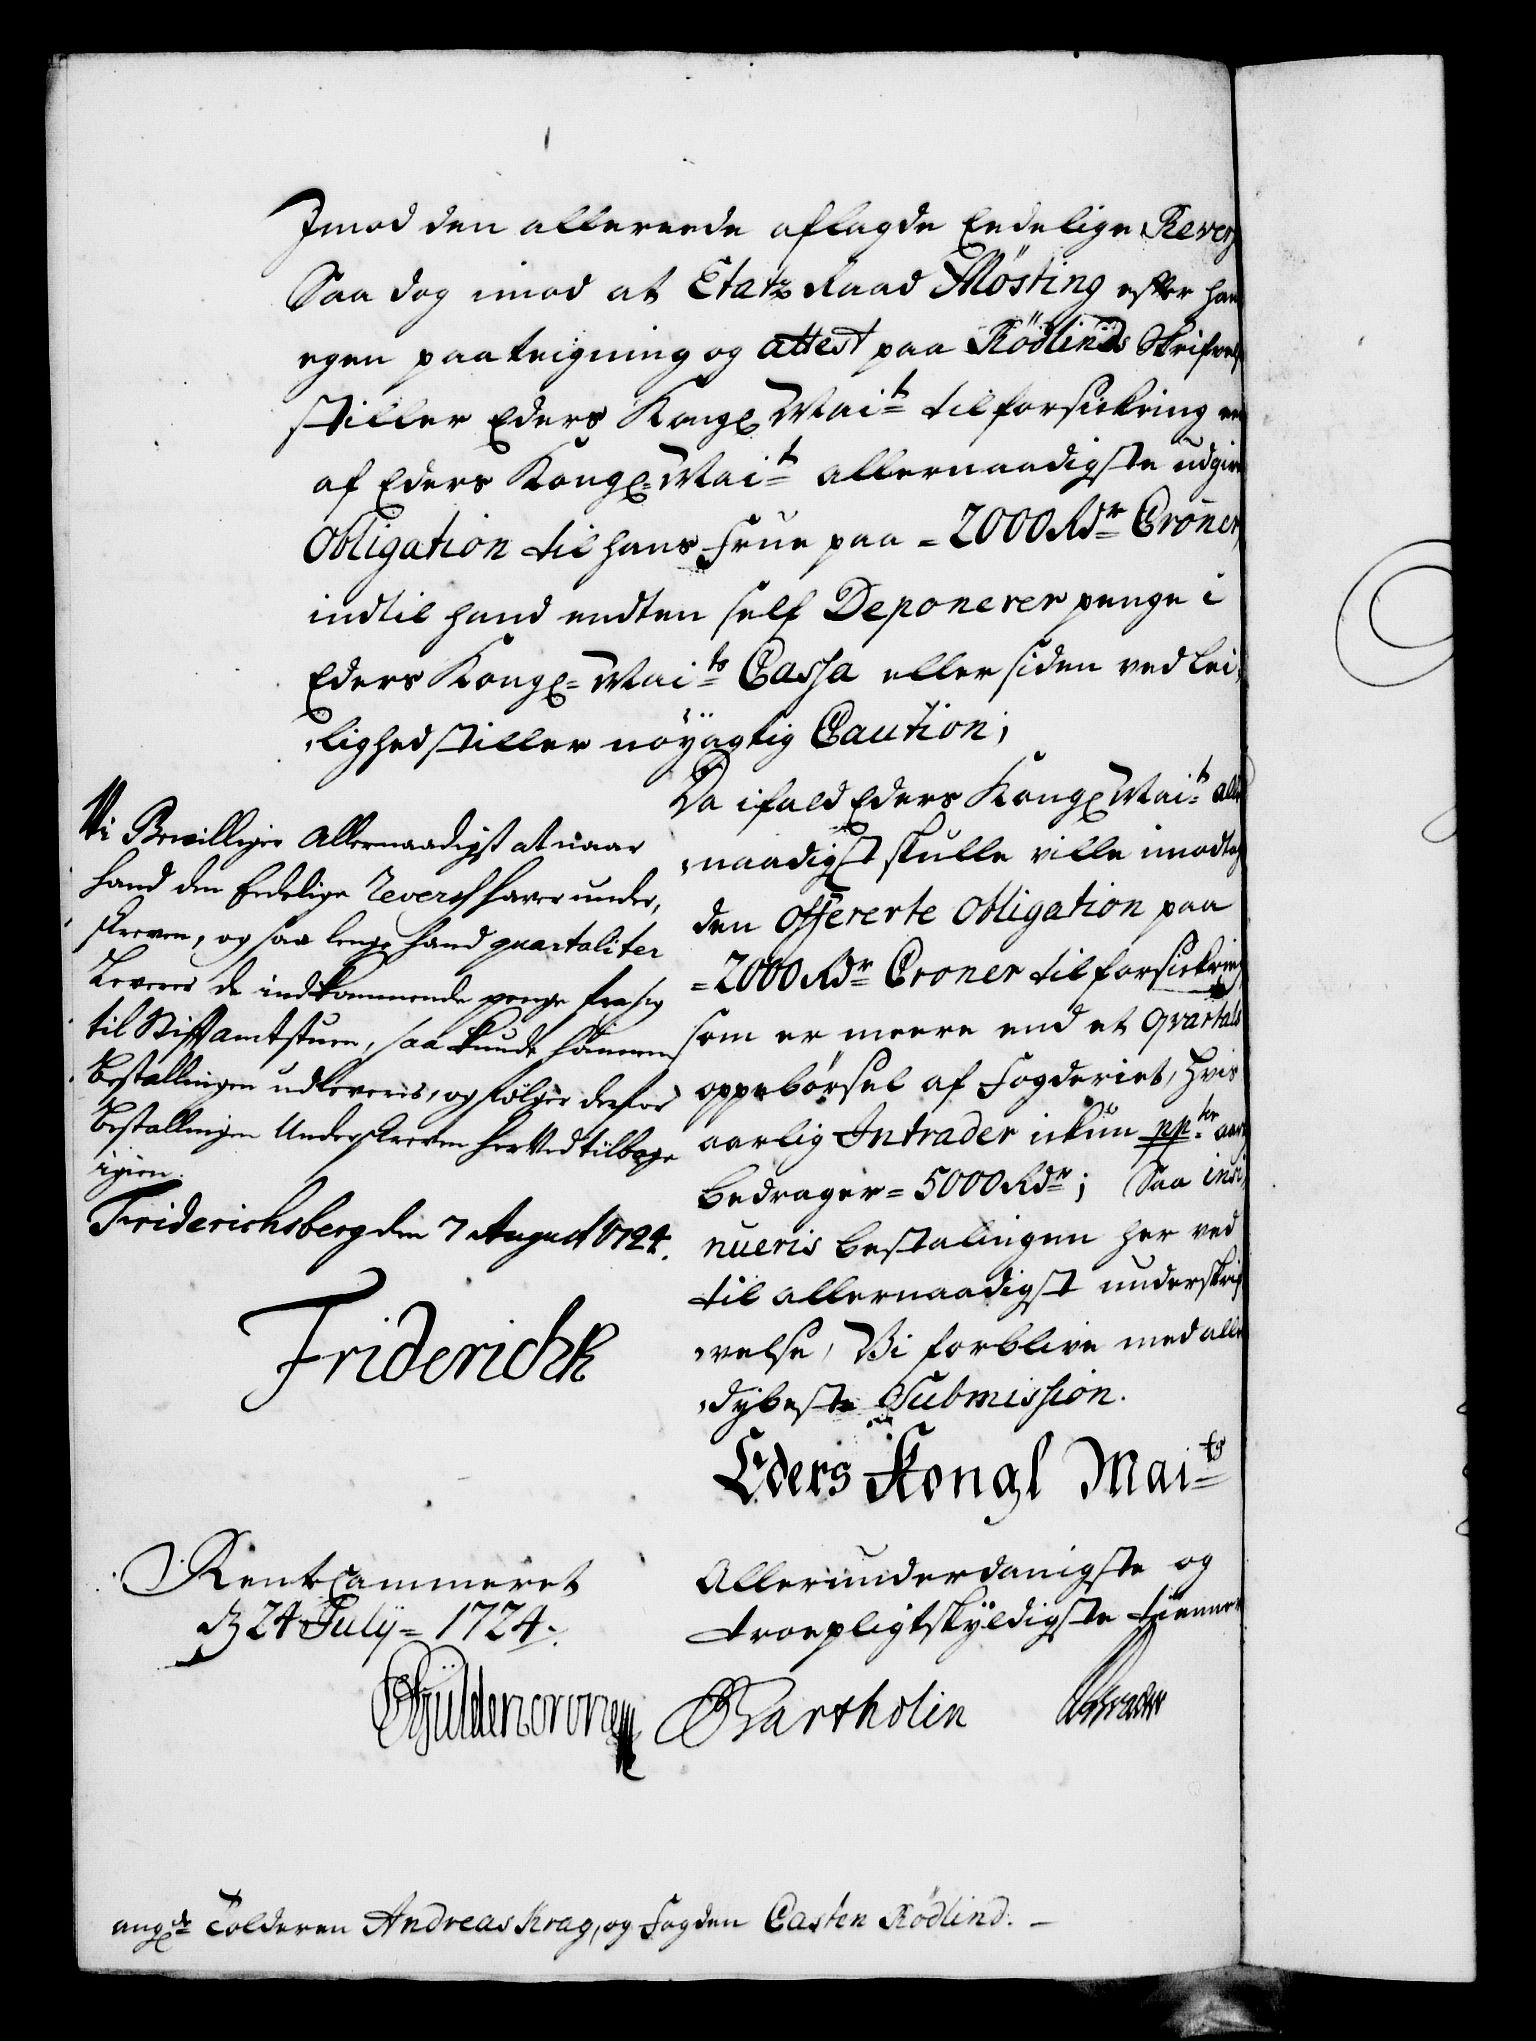 Imod den allereede aflagde Eedelige Revers
Saa dog imod at Etatz Raad Mösting efter hans
egen paateigning og attest paa Rödlinds Skrifvelse
stiller Eders Kongl Mai:t til forsickring en
af Eders Kongl: Mai:t allernaadigste udgivne
Obligation til hans Frue paa = 2000 Rdr Croner,
indtil hand endten self Deponerer penge i
Eders Kongl: Mai:ts Cassa eller siden ved lei,
,lighed stiller nöÿagtig Caution;
Da ifald Eders Kongl Mai:t aller
,naadigst skulle ville imodtage
den offererte Obligation paa
=2000 Rdr Croner til forsickring
som er meere end et qvartals
oppebörsel af Fogderiet, hvis
aarlig Intrader ickun aar
bedrager = 5000 Rdr; Saa insi,
nueris bestalingen her ved
til allernaadigst underskrif
,velse, Vi forblive med aller
,dybeste Submission.
Eders Kongl Mai:ts
Allerunderdanigste og
troepligtskyldigste tienner
Vi Bevilliger Allernaadigst at naar
hand den Eedelige Revers haver under,
skreven, og saa lenge hand quartaliter
Leverer de indkommende penge fra sig
til Stiftamtstuen, saa kunde hannem
bestallingen udleveris, og følger derfor
bestallingen Underskreven herved tilbage
igien.
Friderichsberg den 7 August 1724.
Friderich R
RentCammeret
d 24 Julÿ = 1724.
Güldencrone Bartholin
ang:de Tolderen Andreas Krag, og Fogden Casten Rödlind. –